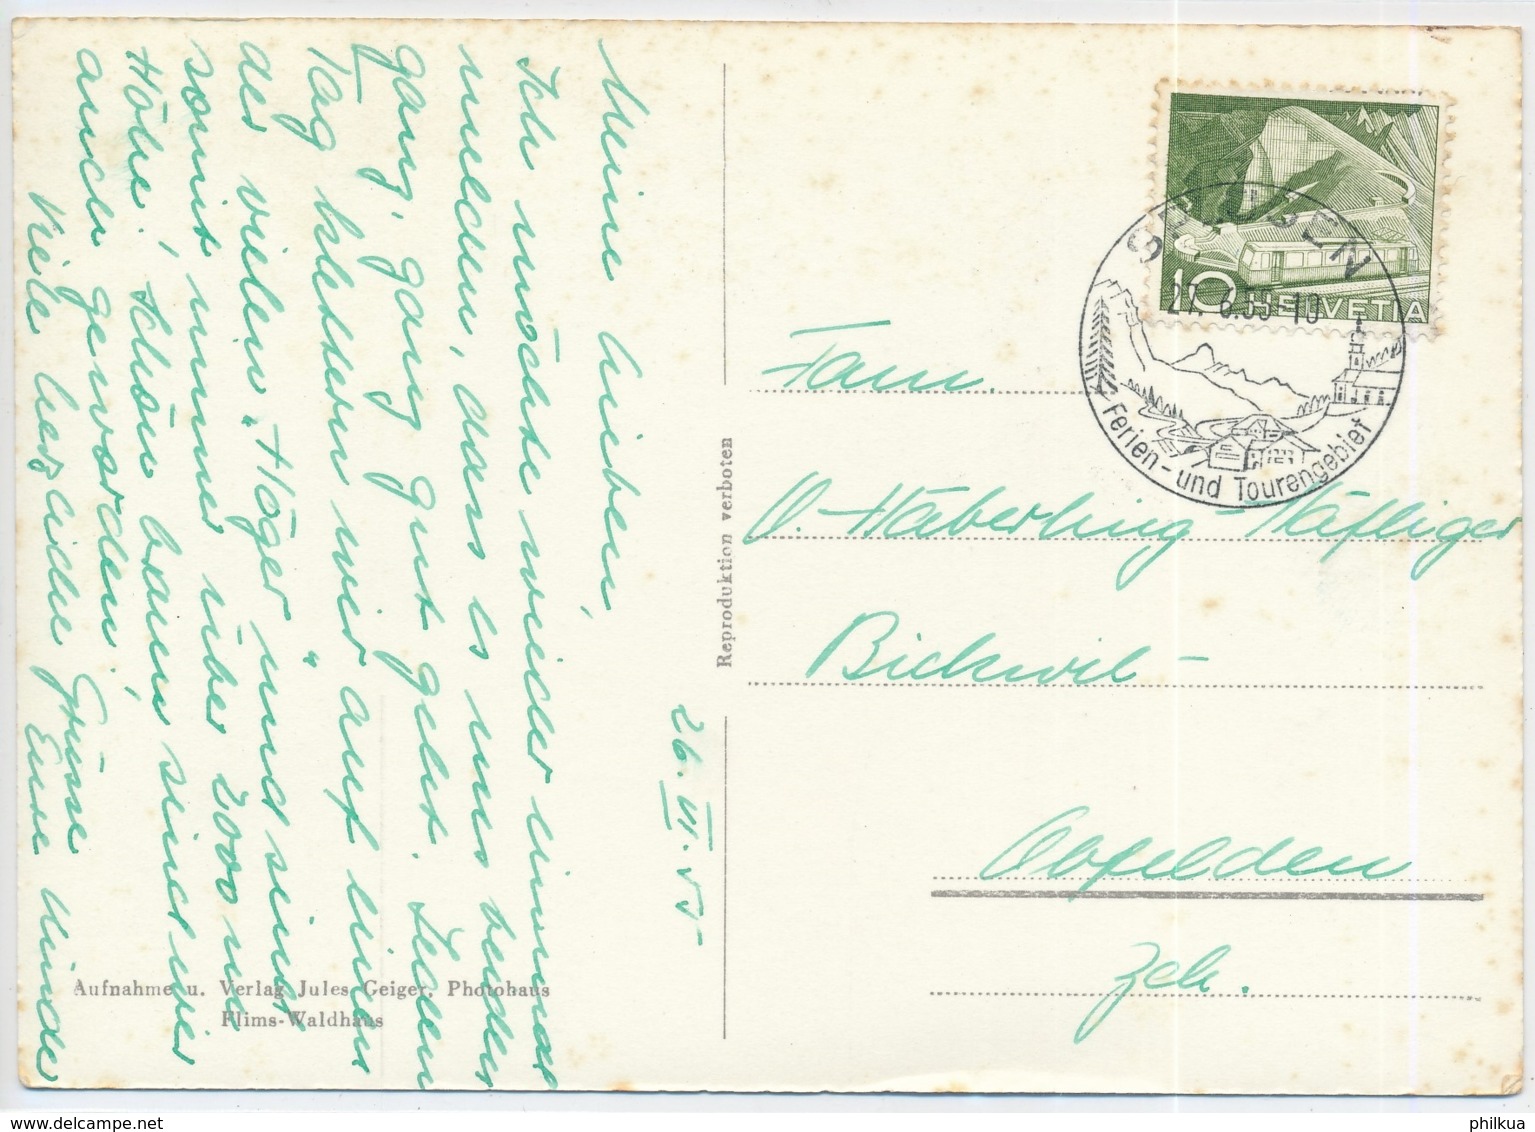 26. VI. 55
Meine Lieben,
Ich möchte wieder einmal
melden, dass es uns beiden
ganz, ganz gut geht. Jeden
Tag klettern wir auf einen
der vielen "Höger" und sind
somit immer über 2000 m
Höhe! Schön braun sind wir
auch geworden!
Viele herzliche Grüsse
Eure Kinder
Aufnahme u. Verlag Jules Geiger, Photohaus
Flims-Waldhaus
Reproduktion verboten
10 HELVETIA
27. 6.55-10
Ferien- und Tourengebiet
Fam.
O. Häberling-Häfliger
Bickwil-
Obfelden
Zch.
philkua